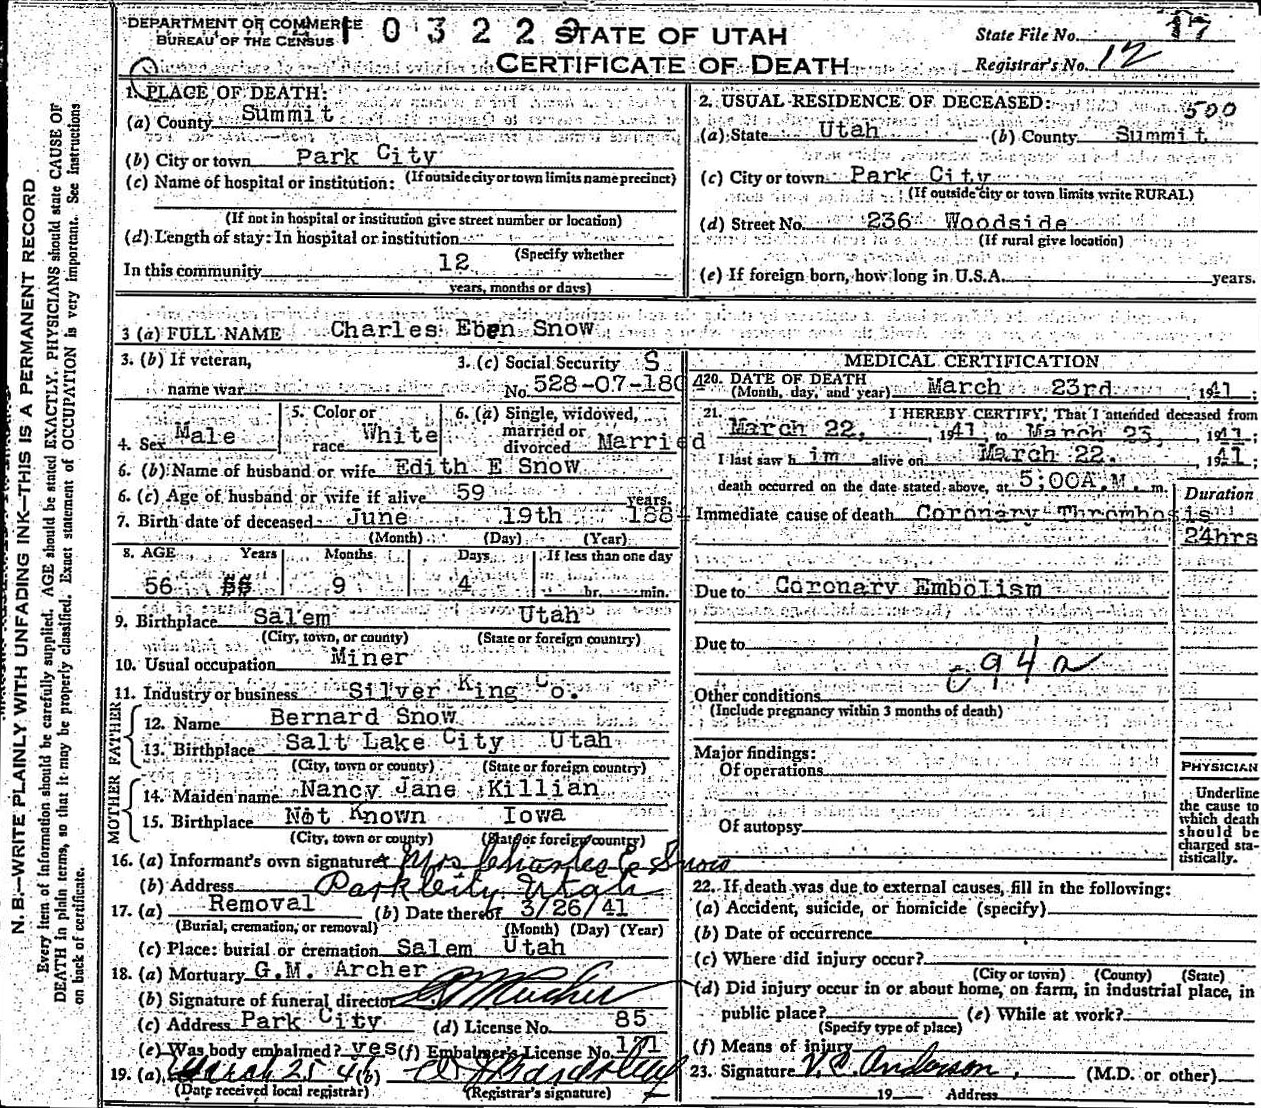 DEPARTMENT OF COMMERCE
BUREAU OF THE CENSUS
0 3 2 2
STATE OF UTAH
CERTIFICATE OF DEATH
State File No. 17
Registrar's No. 12
1. PLACE OF DEATH:
(a) County Summit
(b) City or town Park City
(If outside city or town limits name precinct)
(c) Name of hospital or institution:
(If not in hospital or institution give street number or location)
(d) Length of stay: In hospital or institution
(Specify whether
In this community 12
years, months or days)
2. USUAL RESIDENCE OF DECEASED: 500
(a) State Utah (b) County Summit
(c) City or town Park City
(If outside city or town limits write RURAL)
(d) Street No. 236 Woodside
(If rural give location)
(e) If foreign born, how long in U.S.A. years.
3 (a) FULL NAME Charles Eben Snow
3. (b) If veteran,
name war
3. (c) Social Security S
No. 528-07-180
4. Sex Male
5. Color or
race White
6. (a) Single, widowed,
married or
divorced Married
6. (b) Name of husband or wife Edith E Snow
6. (c) Age of husband or wife if alive 59 years.
7. Birth date of deceased June 19th 1884
(Month) (Day) (Year)
8. AGE Years Months Days If less than one day
56 9 4 hr. min.
9. Birthplace Salem Utah
(City, town, or county) (State or foreign country)
10. Usual occupation Miner
11. Industry or business Silver King Co.
FATHER
12. Name Bernard Snow
13. Birthplace Salt Lake City Utah
(City, town or county) (State or foreign country)
MOTHER
14. Maiden name Nancy Jane Killian
15. Birthplace Not Known Iowa
(City, town or county) (State or foreign country)
16. (a) Informant's own signature x Mrs Charles E Snow
(b) Address Park City Utah
17. (a) Removal (b) Date thereof 3/26/41
(Burial, cremation, or removal) (Month) (Day) (Year)
(c) Place: burial or cremation Salem Utah
18. (a) Mortuary G.M. Archer
(b) Signature of funeral director
(c) Address Park City (d) License No. 85
(e) Was body embalmed? yes (f) Embalmer's License No.
19. (a) March 25 41 (b)
(Date received local registrar) (Registrar's signature)
MEDICAL CERTIFICATION
20. DATE OF DEATH
(Month, day, and year) March 23rd 1941;
21. I HEREBY CERTIFY, That I attended deceased from
March 22, , 1941 to March 23, , 1941;
I last saw h im alive on March 22. , 1941;
death occurred on the date stated above, at 5;00A.M. m.
Duration
Immediate cause of death Coronary Thrombosis
24hrs
Due to Coronary Embolism
Due to
94a
Other conditions
(Include pregnancy within 3 months of death)
Major findings:
Of operations
Of autopsy
PHYSICIAN
Underline
the cause to
which death
should be
charged sta-
tistically.
22. If death was due to external causes, fill in the following:
(a) Accident, suicide, or homicide (specify)
(b) Date of occurrence
(c) Where did injury occur?
(City or town) (County) (State)
(d) Did injury occur in or about home, on farm, in industrial place, in
public place? (e) While at work?
(Specify type of place)
(f) Means of injury
23. Signature V. C. Anderson, (M.D. or other)
19 Address
N. B.—WRITE PLAINLY WITH UNFADING INK—THIS IS A PERMANENT RECORD
Every item of information should be carefully supplied. AGE should be stated EXACTLY. PHYSICIANS should state CAUSE OF
DEATH in plain terms, so that it may be properly classified. Exact statement of OCCUPATION is very important. See instructions
on back of certificate.